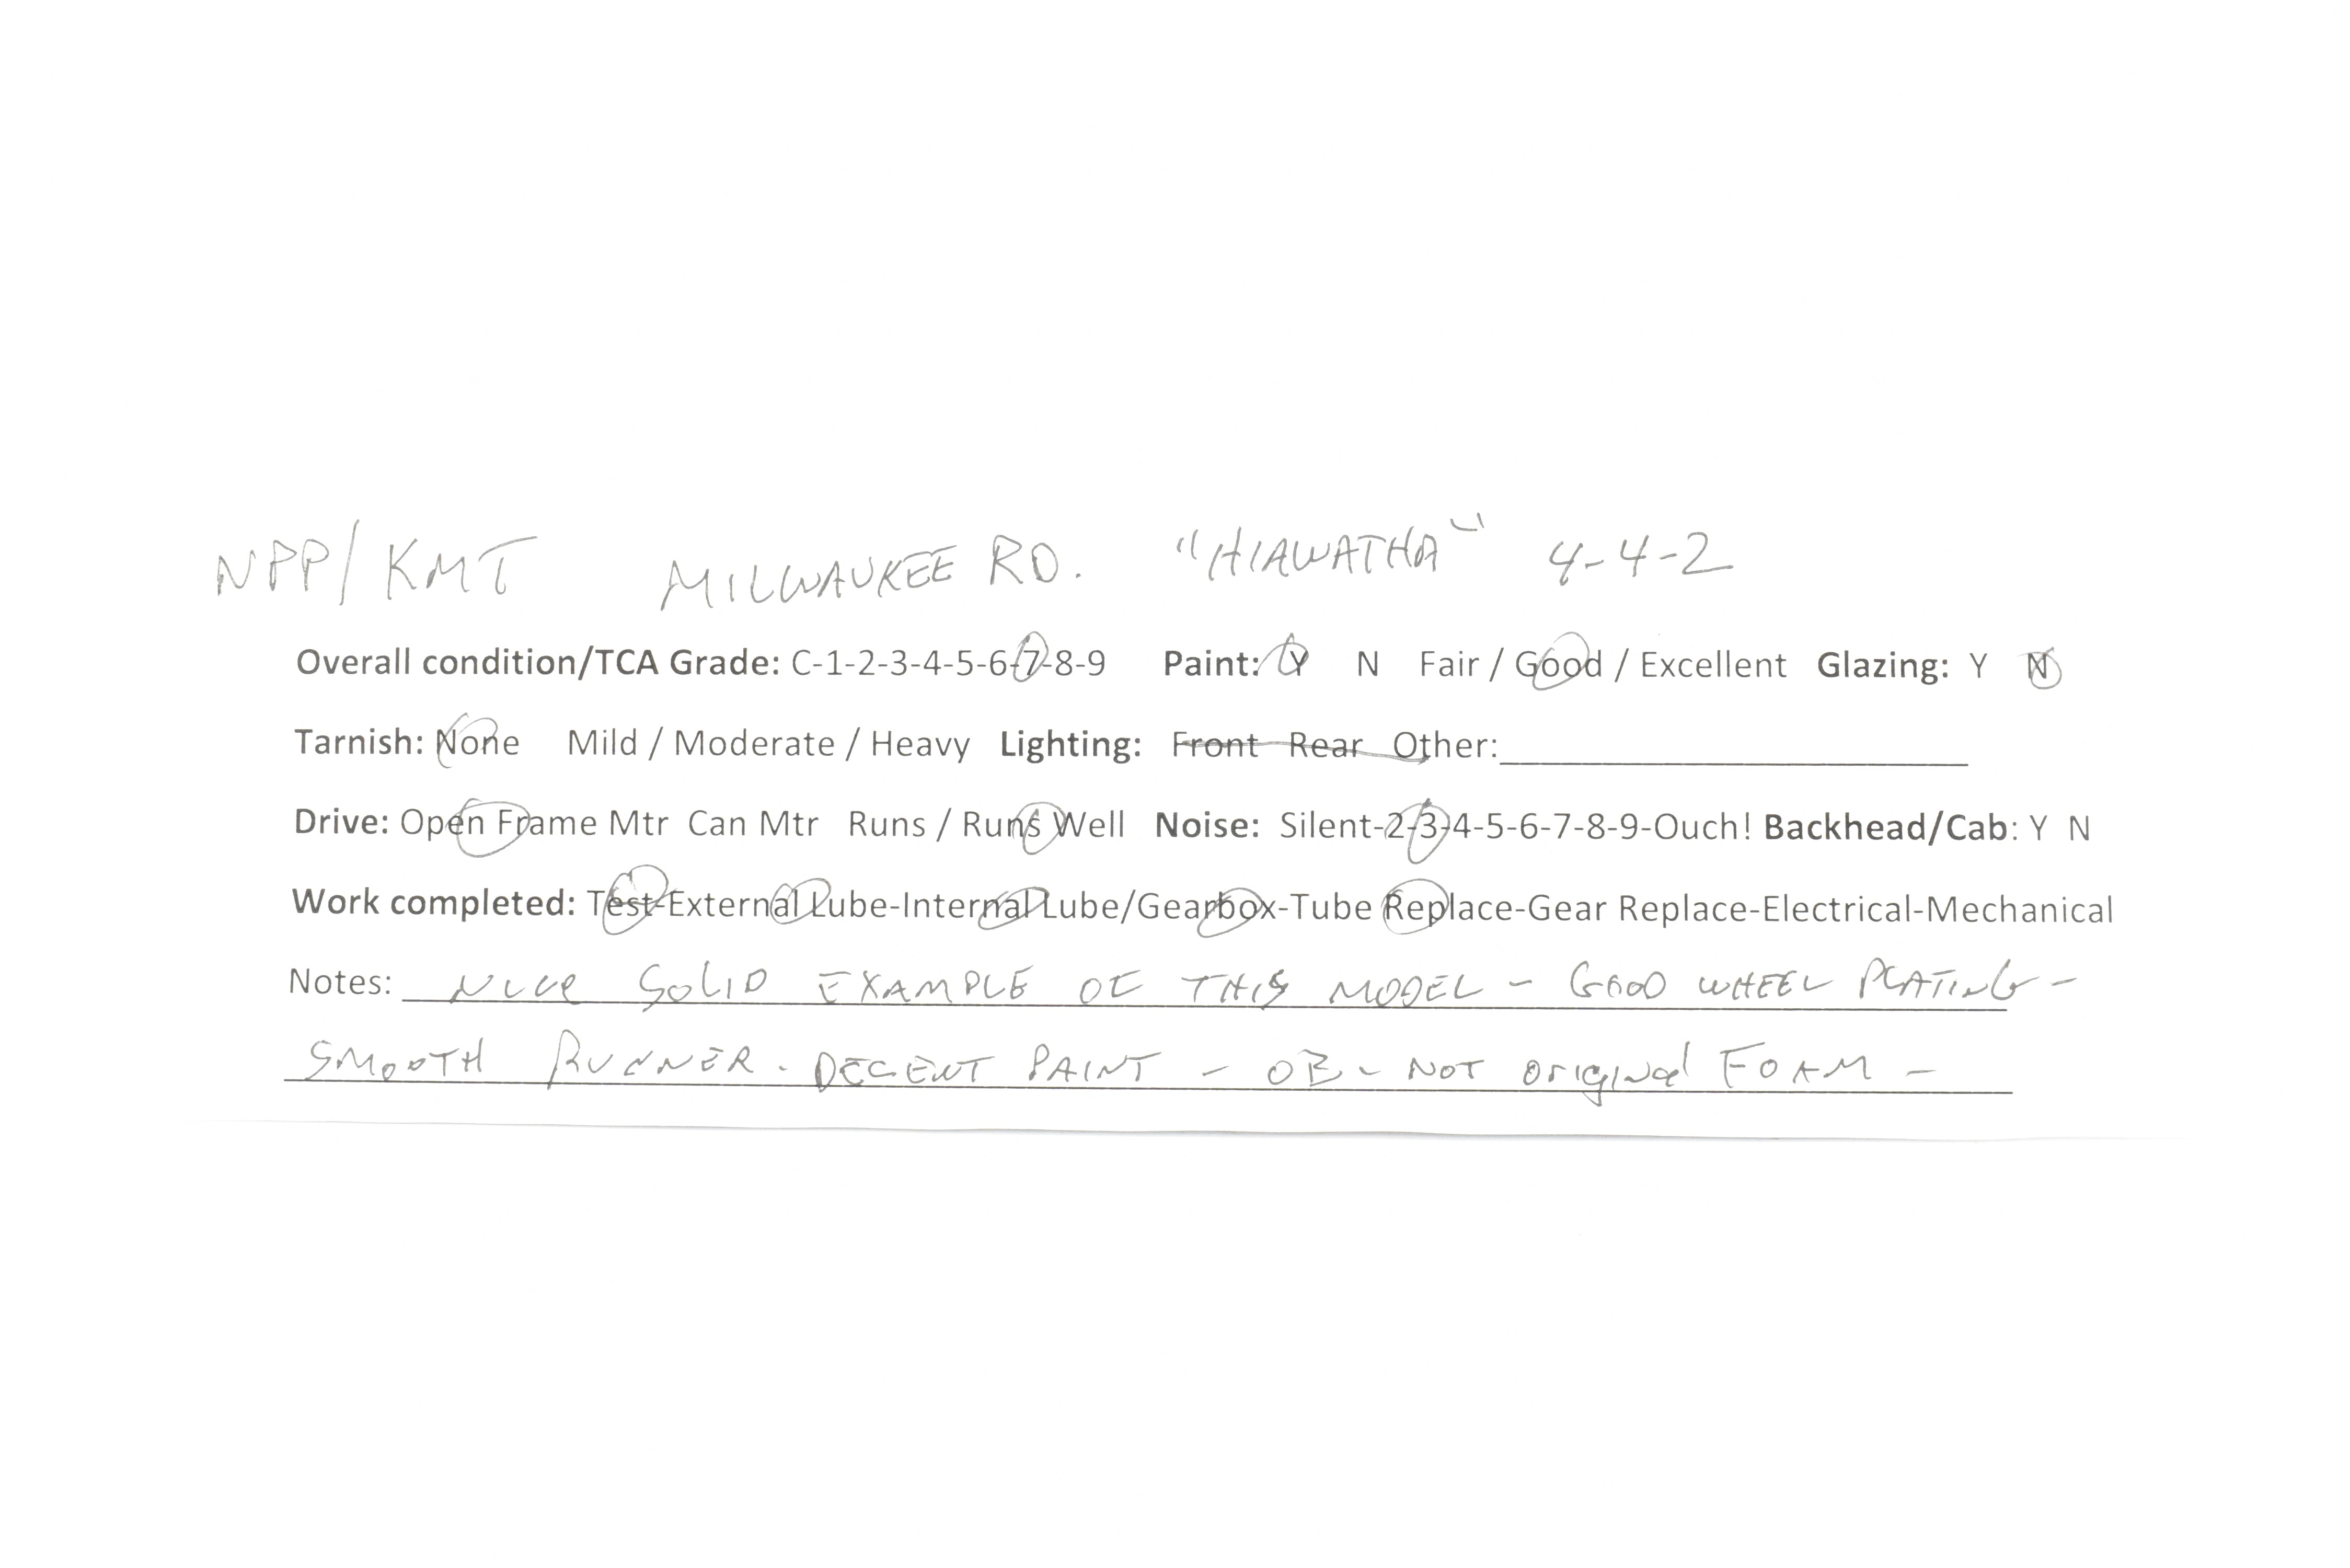 NPP/KMT MILWAUKEE RD. "HIAWATHA" 4-4-2
Overall condition/TCA Grade: C-1-2-3-4-5-6-7-8-9 Paint: Y N Fair / Good / Excellent Glazing: Y N
Tarnish: None Mild / Moderate / Heavy Lighting: Front Rear Other:
Drive: Open Frame Mtr Can Mtr Runs / Runs Well Noise: Silent-2-3-4-5-6-7-8-9-Ouch! Backhead/Cab: Y N
Work completed: Test-External Lube-Internal Lube/Gearbox-Tube Replace-Gear Replace-Electrical-Mechanical
Notes: NICE SOLID EXAMPLE OF THIS MODEL - GOOD WHEEL PLATING -
SMOOTH RUNNER. DECENT PAINT - OB - NOT Original FOAM -